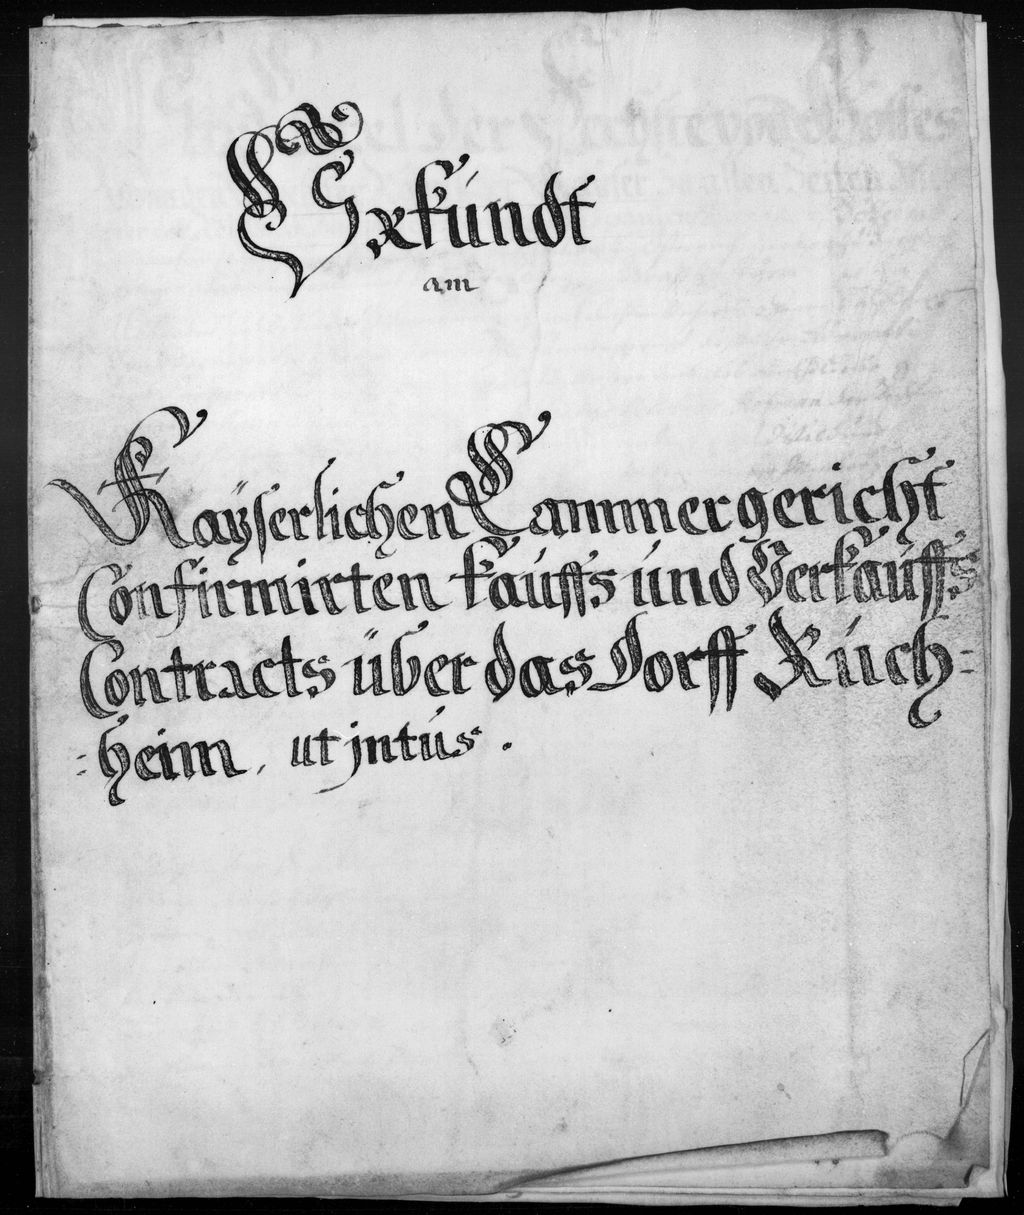 Urkundt
am
Kayserlichen Cammergericht
Confirmirten kauffs und Verkauffs
Contracts über das Dorff Rüch=
=heim, ut jntus.